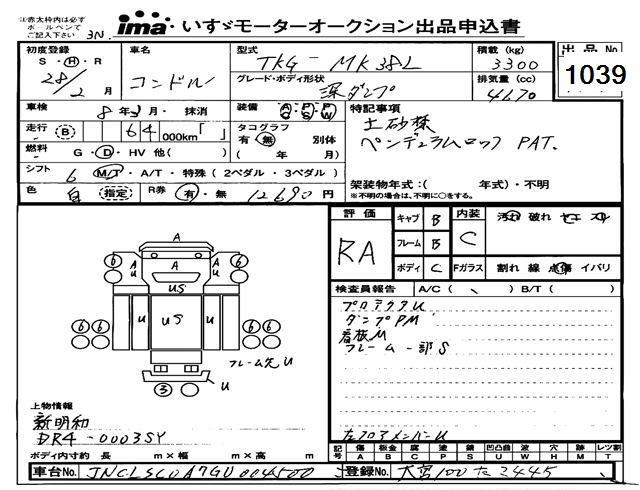 ※赤太枠内は必ず
ボールペンで
ご記入下さい 3N.
ima いすゞモーターオークション出品申込書
初度登録 車名 型式 積載 (kg) 出品No
S・H・R コンドル TKG - MK38L 3300 1039
28/2月 グレード・ボディ形状 深ダンプ 排気量 (cc) 4670
車検 8年2月・抹消 装備 A/C P/S P/W 特記事項
走行 (B) 64 000km「 」 タコグラフ 有・無 別体 土砂禁
( 年 月) ペンデュラムロック PAT.
燃料 G・D・HV 他( )
シフト 6 M/T・A/T・特殊 (2ペダル・3ペダル) 架装物年式:( 年式)・不明
色 白 指定 R券 有・無 12690円 ※不明の場合は、不明に○をする。
評価 キャブ B 内装 汚れ 破れ ヤニ スレ
RA フレーム B C
ボディ C Fガラス 割れ 線 点傷 イバリ
検査員報告 A/C ( ) B/T ( )
プロテクタU
ダンプPM
看板M
フレーム一部S
左フロアメンバーU
A
A U A U
US
U US U
フレーム先U
U
6 6 6 6 6 6
3
上物情報
新明和
DR4-0003SY
ボディ内寸約 長 m×幅 m×高 m
記号 傷 板金 腐 塗 錆 凹凸曲 波 穴 跡 レツ割
A B C P S U W H M T
車台No. JNCLSC0A7GU004500 登録No. 大宮100た3445